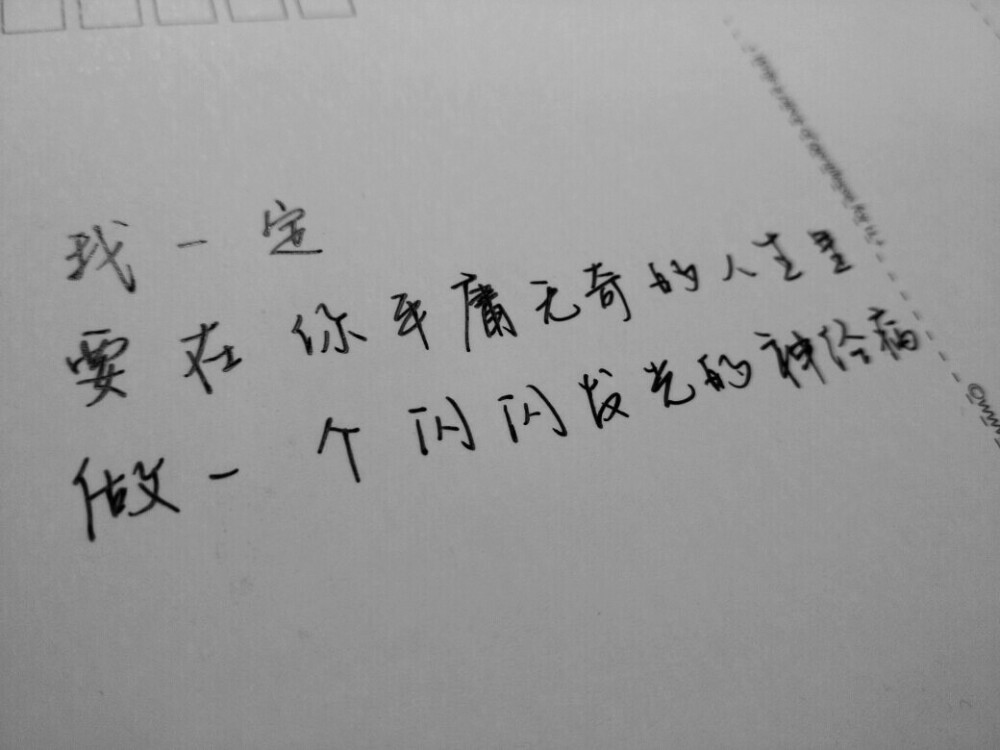 我一定
要在你平庸无奇的人生里
做一个闪闪发光的神经病